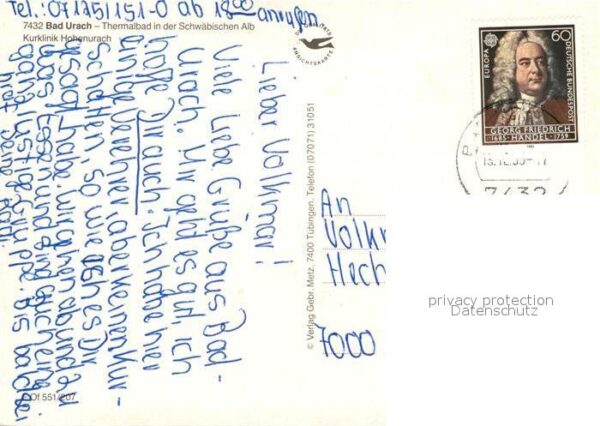 Tel.: 07125/151-0 ab 18⁰⁰ anrufen
7432 Bad Urach – Thermalbad in der Schwäbischen Alb
Kurklinik Hohenurach
ANSICHTSKARTE
Lieber Volkmar!
Viele liebe Grüße aus Bad-
Urach. Mir geht es gut, ich
hoffe Dir auch. Ich habe hier
einige Verehrer, aber wenen Kur-
schatten so wie ich es Dir
gesagt habe. wir gehen ab und zu
das Essen und sind auch eine
ganz lustige Gruppe. Bis bald
Deine
© Verlag Gebr. Metz, 7400 Tübingen, Telefon (07071) 31051
Of 551/207
EUROPA
60
DEUTSCHE BUNDESPOST
GEORG FRIEDRICH
HÄNDEL
1685
1759
7432
An
Volkm
Hech
7000
privacy protection
Datenschutz